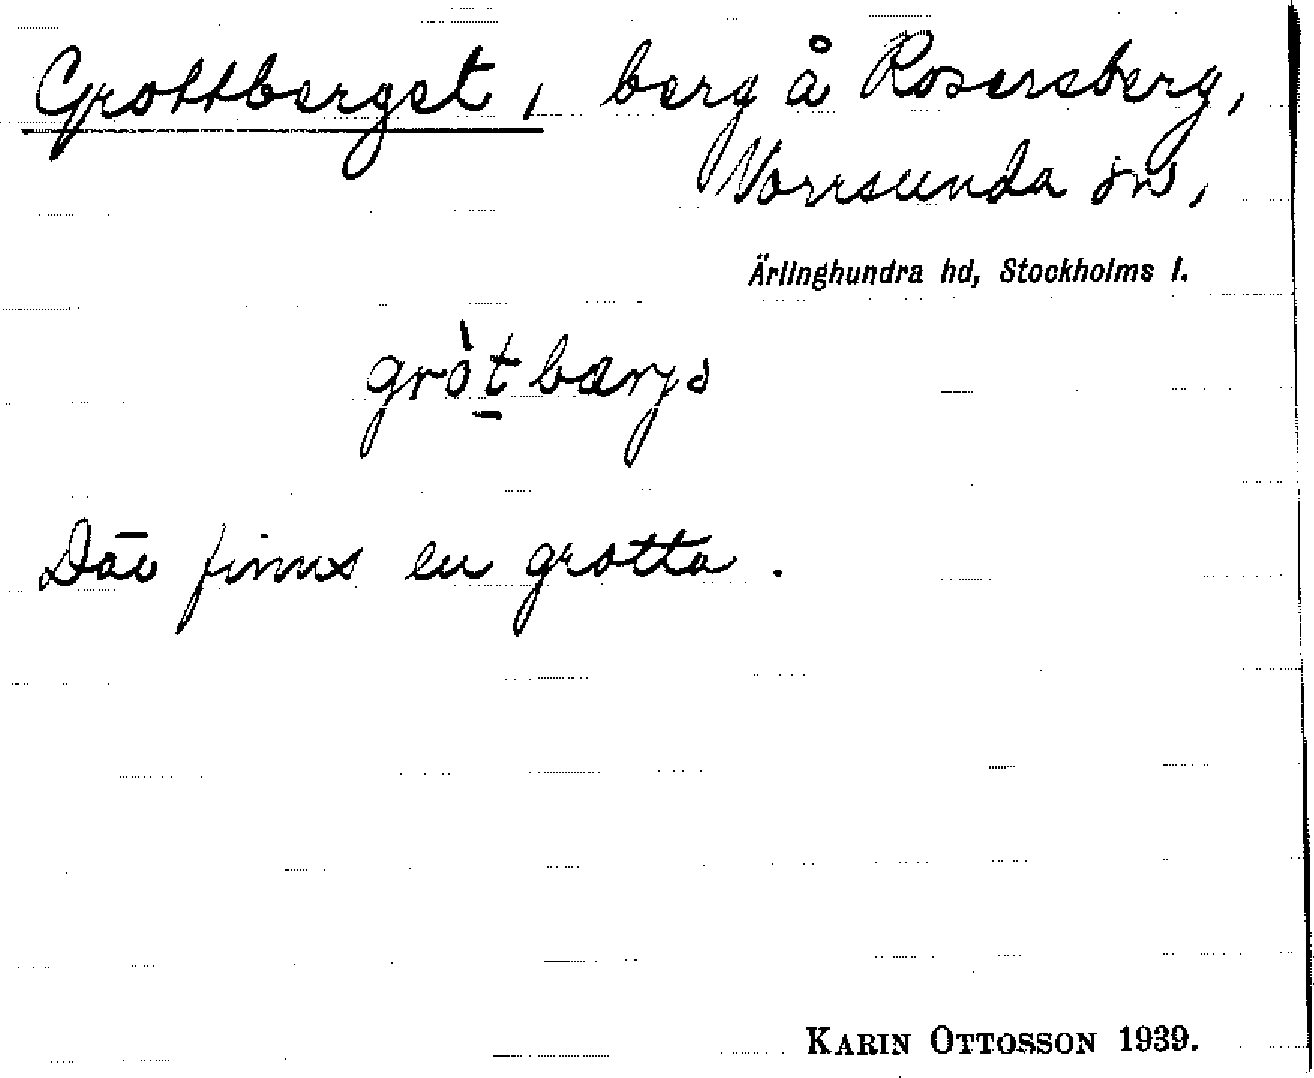 Grottberget, berg å Rosersberg,
Norrsunda sn,
Ärlinghundra hd, Stockholms l.
gròt̠bærjə
Där finns en grotta.
KARIN OTTOSSON 1939.